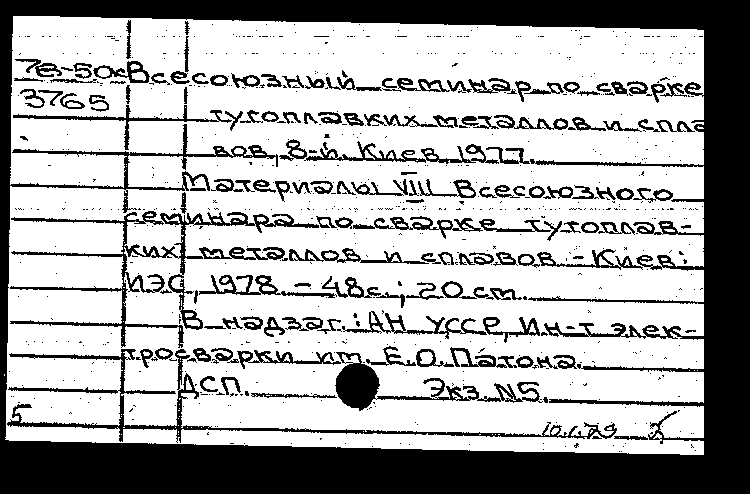 78-50к Всесоюзный семинар по сварке
3765 тугоплавких металлов и спла
вов, 8-й. Киев, 1977.
Материалы VIII Всесоюзного
семинара по сварке тугоплав-
ких металлов и сплавов. - Киев:
ИЭС, 1978. - 48с.; 20 см.
В надзаг.: АН УССР, Ин-т элек-
тросварки им. Е.О.Патона.
ДСП. Экз. N5.
5 10.1.79